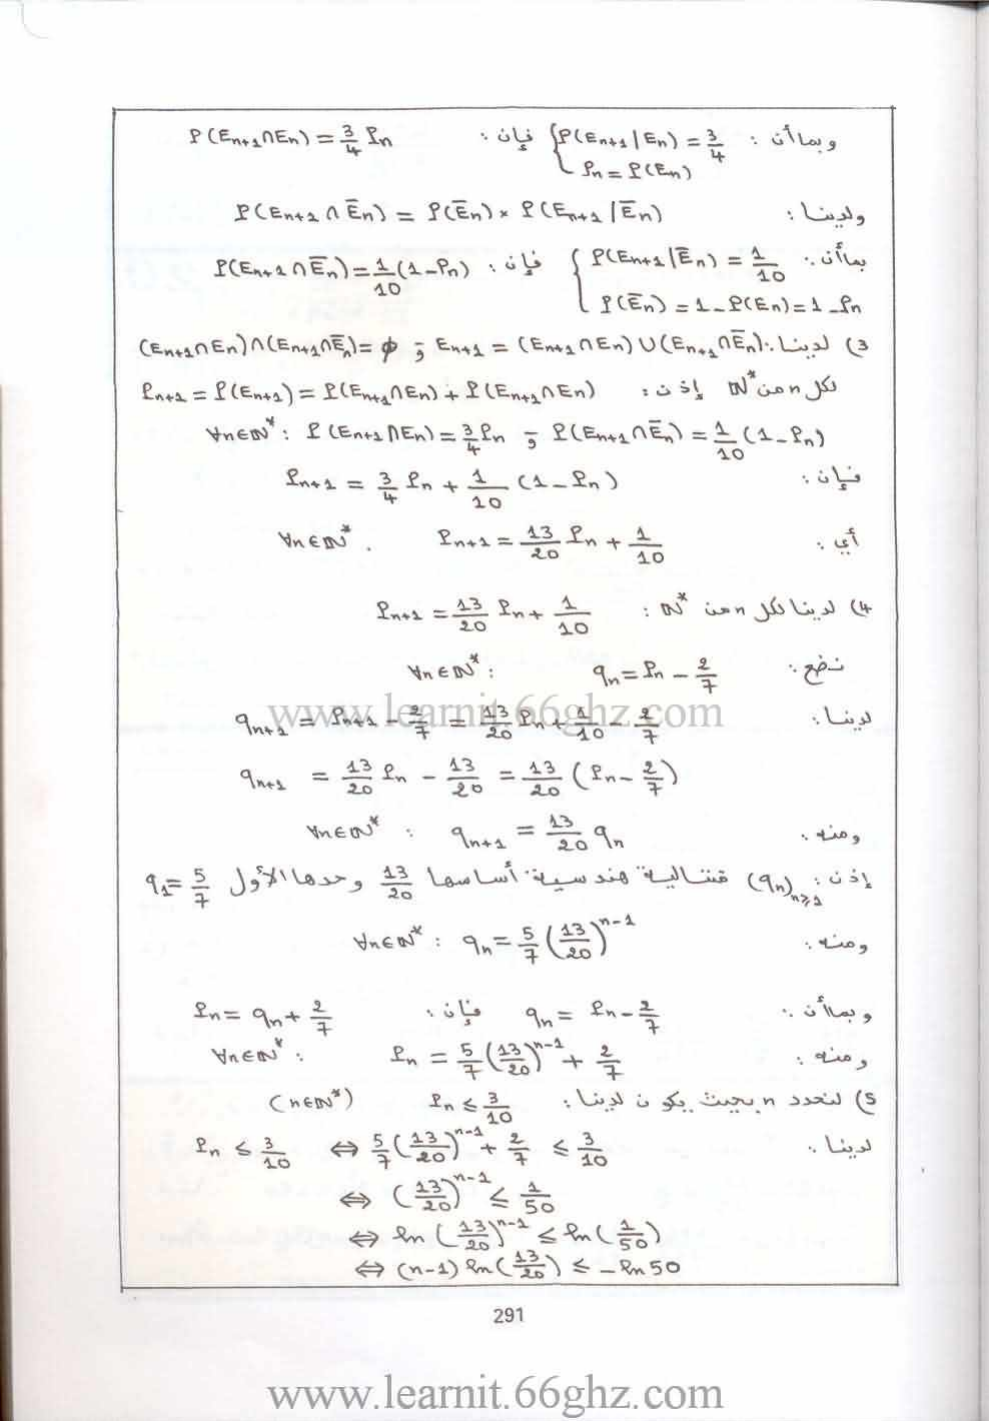 وبما أن : { P(Eₙ₊₁|Eₙ) = 3/4 فإن : P(Eₙ₊₁∩Eₙ) = 3/4 Pₙ
Pₙ = P(Eₙ)
ولدينا : P(Eₙ₊₁ ∩ Ēₙ) = P(Ēₙ) × P(Eₙ₊₁|Ēₙ)
بما أن : { P(Eₙ₊₁|Ēₙ) = 1/10 فإن : P(Eₙ₊₁∩Ēₙ) = 1/10 (1-Pₙ)
P(Ēₙ) = 1-P(Eₙ) = 1-Pₙ
3) لدينا : Eₙ₊₁ = (Eₙ₊₁∩Eₙ)∪(Eₙ₊₁∩Ēₙ) ; (Eₙ₊₁∩Eₙ)∩(Eₙ₊₁∩Ēₙ) = ϕ
لكل n من ℕ* إذن : Pₙ₊₁ = P(Eₙ₊₁) = P(Eₙ₊₁∩Eₙ) + P(Eₙ₊₁∩Eₙ)
∀n∈ℕ* : P(Eₙ₊₁∩Eₙ) = 3/4 Pₙ ; P(Eₙ₊₁∩Ēₙ) = 1/10 (1-Pₙ)
فإن : Pₙ₊₁ = 3/4 Pₙ + 1/10 (1-Pₙ)
أي : Pₙ₊₁ = 13/20 Pₙ + 1/10 ∀n∈ℕ* .
4) لدينا لكل n من ℕ* : Pₙ₊₁ = 13/20 Pₙ + 1/10
نضع : qₙ = Pₙ - 2/7 ∀n∈ℕ* :
لدينا : qₙ₊₁ = Pₙ₊₁ - 2/7 = 13/20 Pₙ + 1/10 - 2/7
www.learnit.66ghz.com
qₙ₊₁ = 13/20 Pₙ - 13/20 = 13/20 (Pₙ - 2/7)
ومنه : ∀n∈ℕ* : qₙ₊₁ = 13/20 qₙ
إذن : (qₙ)ₙ≥₁ متتالية هندسية أساسها 13/20 وحدها الأول q₁ = 5/7
ومنه : ∀n∈ℕ* : qₙ = 5/7 (13/20)ⁿ⁻¹
وبما أن : qₙ = Pₙ - 2/7 فإن : Pₙ = qₙ + 2/7
ومنه : Pₙ = 5/7 (13/20)ⁿ⁻¹ + 2/7 ∀n∈ℕ* :
5) لنحدد n بحيث يكون لدينا : Pₙ ≤ 3/10 (n∈ℕ*)
لدينا : Pₙ ≤ 3/10 ⇔ 5/7 (13/20)ⁿ⁻¹ + 2/7 ≤ 3/10
⇔ (13/20)ⁿ⁻¹ ≤ 1/50
⇔ ln (13/20)ⁿ⁻¹ ≤ ln (1/50)
⇔ (n-1) ln (13/20) ≤ - ln 50
291
www.learnit.66ghz.com